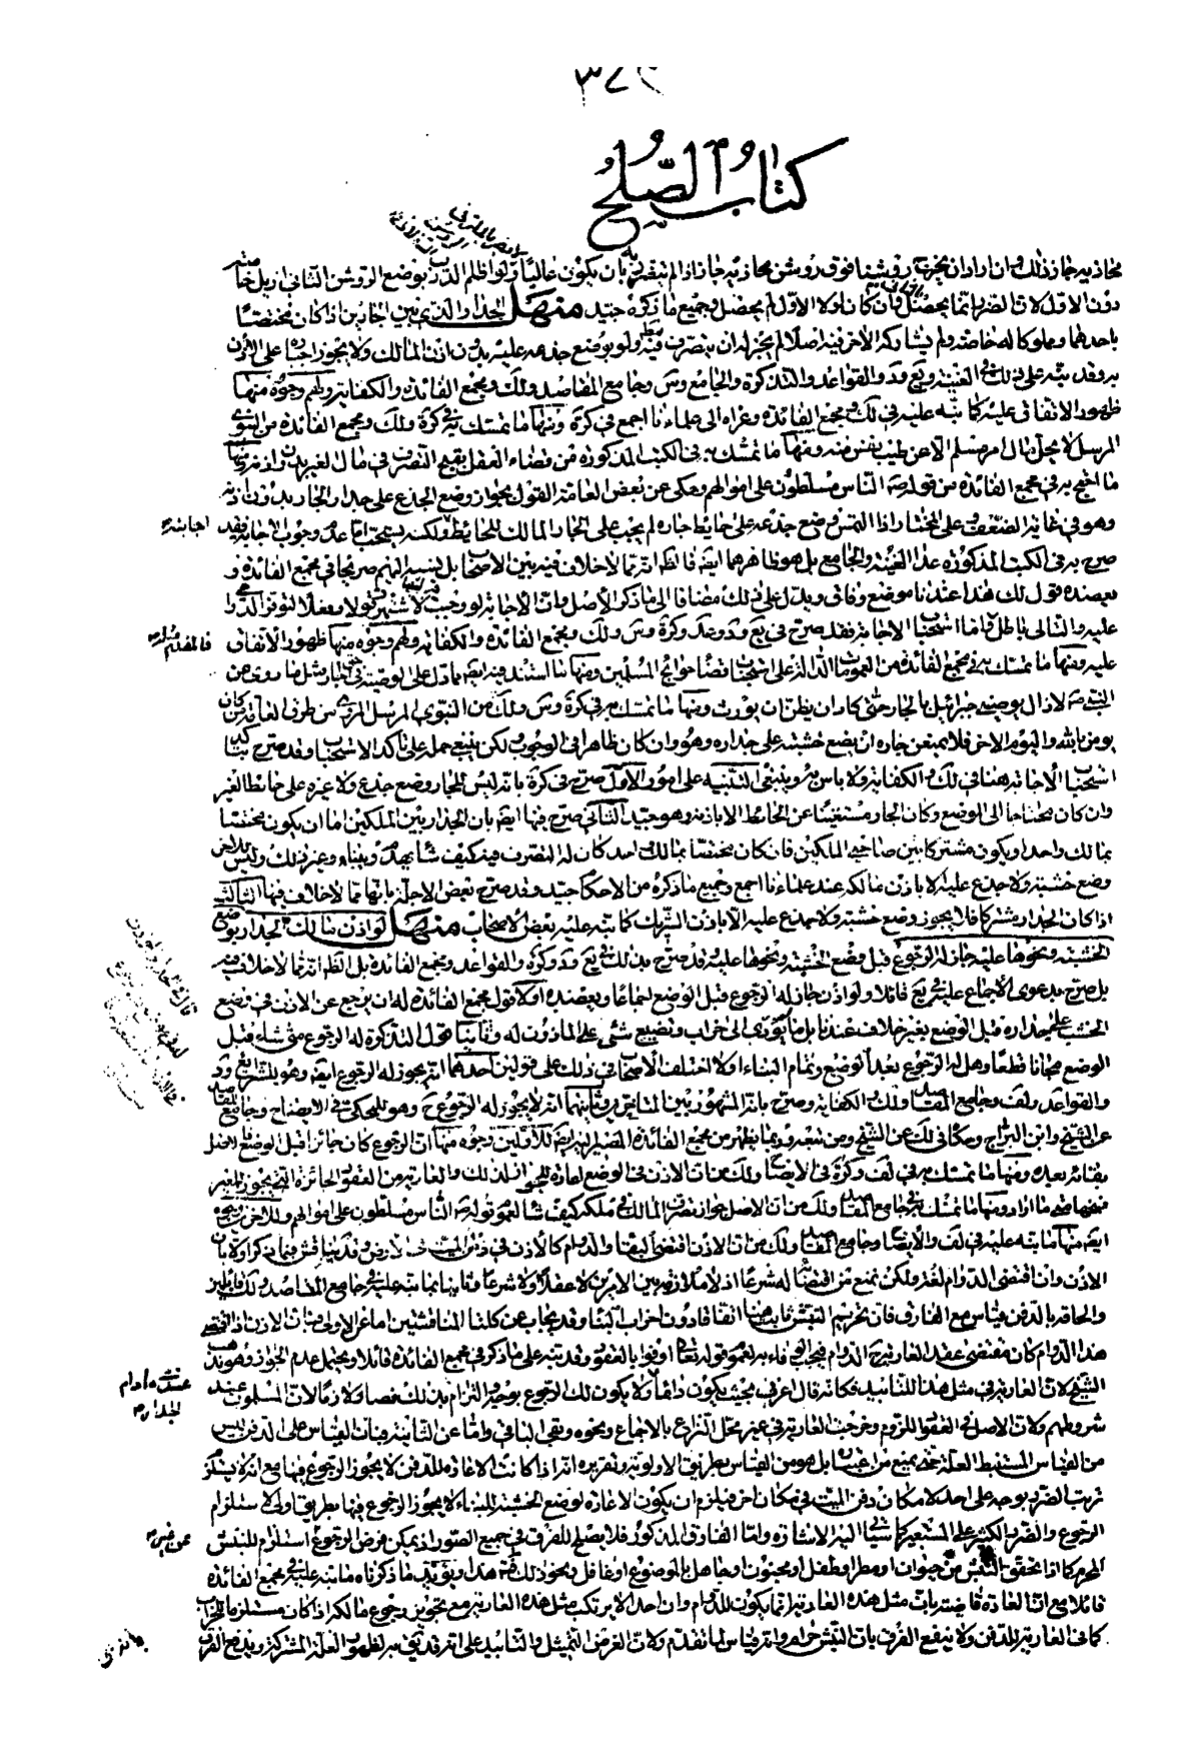 ٣٤٢
كتاب الصلح
محاذيه جاز ذلك وان اراد ان يخرج روشنا فوق روشن محاذيه جاز اذا لم يتضرر به بان يكون عاليا ولو اظلم الدرب بوضع الروشن الثاني ازيل خاصة
دون الاول لان الضرر انما يحصل به وان كان لولا الاول لم يحصل وجميع ما ذكره جيد منهل الجدار الذي بين الجارين اذا كان مختصا
باحدهما ومملوكا له خاصة ولم يشاركه الاخر فيه اصلا لم يجز له ان يتصرف فيه ولو بوضع جذعه عليه بدون اذن المالك ولا يجوز اجباره على الاذن
به وقد نبه على ذلك في الغنية ويع وعد والقواعد والتذكرة والجامع وس وجامع المقاصد ولك ومجمع الفائدة والكفاية ولهم وجوه منها
ظهور الاتفاق عليه كما نبه عليه في لك ومجمع الفائدة وعزاه الى علمائنا اجمع في كرة ومنها ما تمسك به في كرة ولك ومجمع الفائدة من النبوي
المرسل لا يحل مال امرء مسلم الا عن طيب نفس منه ومنها ما تمسك به في الكتب المذكورة من قضاء العقل بقبح التصرف في مال الغير بدون اذنه ومنها
ما احتج به في مجمع الفائدة من قوله ص الناس مسلطون على اموالهم وحكى عن بعض العامة القول بجواز وضع الجذع على جدار الجار بدون اذنه
وهو في غاية الضعف وعلى المختار اذا التمس وضع جذعه على حايط جاره لم يجب على الجار المالك للحايط ولكنه يستحب اما عدم وجوب الاجابة فقد اجابته
صرح به في الكتب المذكورة عدا الغنية والجامع بل هو ظاهرهما ايضا فالظاهر انه مما لا خلاف فيه بين الاصحاب بل نسبه اليهم صريحا في مجمع الفائدة و
يعضده قول لك هذا عندنا موضع وفاق ويدل على ذلك مضافا الى ما ذكر الاصل وان الاجابة لو وجبت لاشتهر قولا وفعلا لتوفر الدواعي
عليه والتالي باطل فالمقدم مثله واما استحباب الاجابة فقد صرح في يع وعد وكرة وس ولك ومجمع الفائدة والكفاية ولهم وجوه منها ظهور الاتفاق
عليه ومنها ما تمسك به في مجمع الفائدة من العمومات الدالة على استحباب قضاء حوائج المسلمين ومنها ما استند فيه ايضا مما دل على الوصية في الجار مثل ما روى عن
النبي ص لا زال يوصيني جبرائيل بالجار حتى كاد ان يظن ان يورث ومنها ما تمسك به في كرة وس ولك من النبوي المرسل المروي من طرق العامة من كان
يؤمن بالله واليوم الاخر فلا يمنعن جاره ان يضع خشبته على جداره وهو وان كان ظاهرا في الوجوب لكن ينبغي حمله على تاكد الاستحباب وقد صرح بتاكيد
استحباب الاجابة هنا في لك والكفاية ولا باس به وينبغي التنبيه على امور الاول صرح في كرة بانه ليس للجار وضع جذع ولا غيره على حائط الغير
وان كان محتاجا الى الوضع وكان الجار مستغنيا عن الحائط الا باذنه وهو جيد الثاني صرح فيها ايضا بان الجدار بين الملكين اما ان يكون مختصا
بمالك واحد او يكون مشتركا بين صاحبي الملكين فان كان مختصا بمالك واحد كان له التصرف فيه كيف شاء بهدم وبناء وغير ذلك وليس للاخر
وضع خشبة ولا جذع عليه الا باذن مالكه عند علمائنا اجمع وجميع ما ذكره من الاحكام جيد وقد صرح بعض الاجلة بانها مما لا خلاف فيها الثالث
اذا كان الجدار مشتركا فلا يجوز وضع خشبة ولا جذع عليه الا باذن الشريك كما نبه عليه بعض الاصحاب منهل لو اذن مالك الجدار بوضع
الخشبة ونحوها عليه جاز له الرجوع قبل وضع الخشبة ونحوها عليه وقد صرح بذلك في يع وعد وكرة والقواعد ومجمع الفائدة بل الظاهر انه مما لا خلاف فيه
بل صرح بدعوى الاجماع عليه في يع قائلا ولو اذن جاز له الرجوع قبل الوضع اجماعا ويعضده اولا قول مجمع الفائدة له ان يرجع عن الاذن في وضع
الخشب على جداره قبل الوضع بغير خلاف عندنا بل ما يؤدى الى خراب وتضييع شئ على الماذون له وثانيا قول التذكرة له الرجوع متى شاء قبل
الوضع مجانا قطعا وهل له الرجوع بعد الوضع وتمام البناء او لا اختلف الاصحاب في ذلك على قولين احدهما انه يجوز له الرجوع ايضا وهو للشرايع وعد
والقواعد ولف وجامع المقاصد ولك والكفاية وصرح بانه المشهور بين المتاخرين وثانيهما انه لا يجوز له الرجوع ح وهو المحكي في الايضاح وجامع المقاصد
عن الشيخ وابن البراج وحكاه في لك عن الشيخ ومن تبعه وربما يظهر من مجمع الفائدة المصير اليه ايضا للاولين وجوه منها ان الرجوع كان جائزا قبل الوضع والاصل
بقائه بعده ومنها ما تمسك به في لف وكرة والايضاح ولك من ان الاذن في الوضع اعارة للجواز لذلك والعارية من العقود الجائزة التي يجوز للمعير
فسخها متى ما اراد ومنها ما تمسك به في جامع المقاصد ولك من ان الاصل جواز تصرف المالك في ملكه كيف شاء لعموم قوله ص الناس مسلطون على اموالهم وللاخرين وجوه
ايضا منها ما نبه عليه في لف والايضاح وجامع المقاصد ولك من ان الاذن اقتضى البقاء والدوام كالاذن في دفن الميت في الارض وقد يناقش فيما ذكر اولا بان
الاذن وان اقتضى الدوام لغة ولكن نمنع من اقتضائه له شرعا اذ لا ملازمة بين الامرين لا عقلا ولا شرعا وثانيا بما نبه عليه في جامع المقاصد ولك قائلين
والحاقه بالدفن قياس مع الفارق فان تحريم النبش ثابت هنا اتفاقا دون اخراب البناء وقد يجاب عن كلتا المناقشتين اما عن الاولى فبان الاذن اذا اقتضى
هذا الدوام كان مقتضى عقد العارية ح الدوام فيجب الوفاء به لعموم قوله تعالى اوفوا بالعقود وقد نبه على ما ذكر في مجمع الفائدة قائلا ويحتمل عدم الجواز وهو مذهب
الشيخ لان العارية في مثل هذا للتابيد فكانه قال اعرني بحيث يكون دائما ولا يكون لك الرجوع بوجه والتزم بذلك فصار لازما لان المسلمون عند
شروطهم ولان الاصل في العقود اللزوم وخرجت العارية في غير محل النزاع بالاجماع ونحوه وبقي الباقي واما عن الثانية فبان القياس على الدفن ليس
من القياس المستنبط العلة حتى يمنع من اعتباره بل هو من القياس بطريق الاولوية وتقريره انه اذا كانت الاعارة للدفن لا يجوز الرجوع فيها مع انه لا يستلزم
ترتب الضرر بوجه على احد لامكان دفن الميت في مكان اخر فيلزم ان يكون الاعارة لوضع الخشبة للبناء لا يجوز الرجوع فيها بطريق اولى لاستلزام
الرجوع والضرر الكثير على المستعير كما سياتي اليه الاشارة واما الفارق المذكور فلا يصلح للفرق في جميع الصور اذ يمكن فرض الرجوع استلزم للنبش
المحرم كما اذا تحقق النبش من حيوان او مطر او طفل او مجنون او جاهل بالموضوع او غافل ونحو ذلك فتم هذا ويؤيد ما ذكرناه ما نبه عليه في مجمع الفائدة
قائلا مع ان العادة قاضية بان مثل هذه العارية انما يكون للدوام وان احدا لا يرتكب مثل هذه العارية مع تجويز رجوع مالكه اذا كان مستلزما للخراب
كما في العارية للدفن ولا ينفع الفرق بان النبش حرام وانه قياس لما تقدم ولان الغرض التمثيل والتابيد على انه قد يقى به لظهور العلة المشتركة ويدفع الفرق